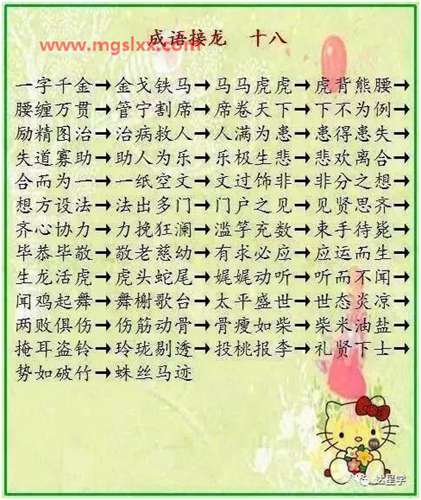 成语接龙 十八
www.mgslxx.com
一字千金→金戈铁马→马马虎虎→虎背熊腰→
腰缠万贯→管宁割席→席卷天下→下不为例→
励精图治→治病救人→人满为患→患得患失→
失道寡助→助人为乐→乐极生悲→悲欢离合→
合而为一→一纸空文→文过饰非→非分之想→
想方设法→法出多门→门户之见→见贤思齐→
齐心协力→力挽狂澜→滥竽充数→束手待毙→
毕恭毕敬→敬老慈幼→有求必应→应运而生→
生龙活虎→虎头蛇尾→娓娓动听→听而不闻→
闻鸡起舞→舞榭歌台→太平盛世→世态炎凉→
两败俱伤→伤筋动骨→骨瘦如柴→柴米油盐→
掩耳盗铃→玲珑剔透→投桃报李→礼贤下士→
势如破竹→蛛丝马迹
达星宇